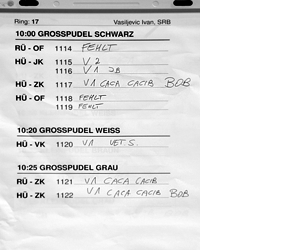 Ring: 17 Vasiljevic Ivan, SRB
10:00 GROSSPUDEL SCHWARZ
RÜ - OF 1114 FEHLT
HÜ - JK 1115 V2
1116 V1 JB
HÜ - ZK 1117 V1 CACA CACIB BOB
HÜ - OF 1118 FEHLT
1119 FEHLT
10:20 GROSSPUDEL WEISS
HÜ - VK 1120 V1 VET S.
10:25 GROSSPUDEL GRAU
RÜ - ZK 1121 V1 CACA CACIB
HÜ - ZK 1122 V1 CACA CACIB BOB